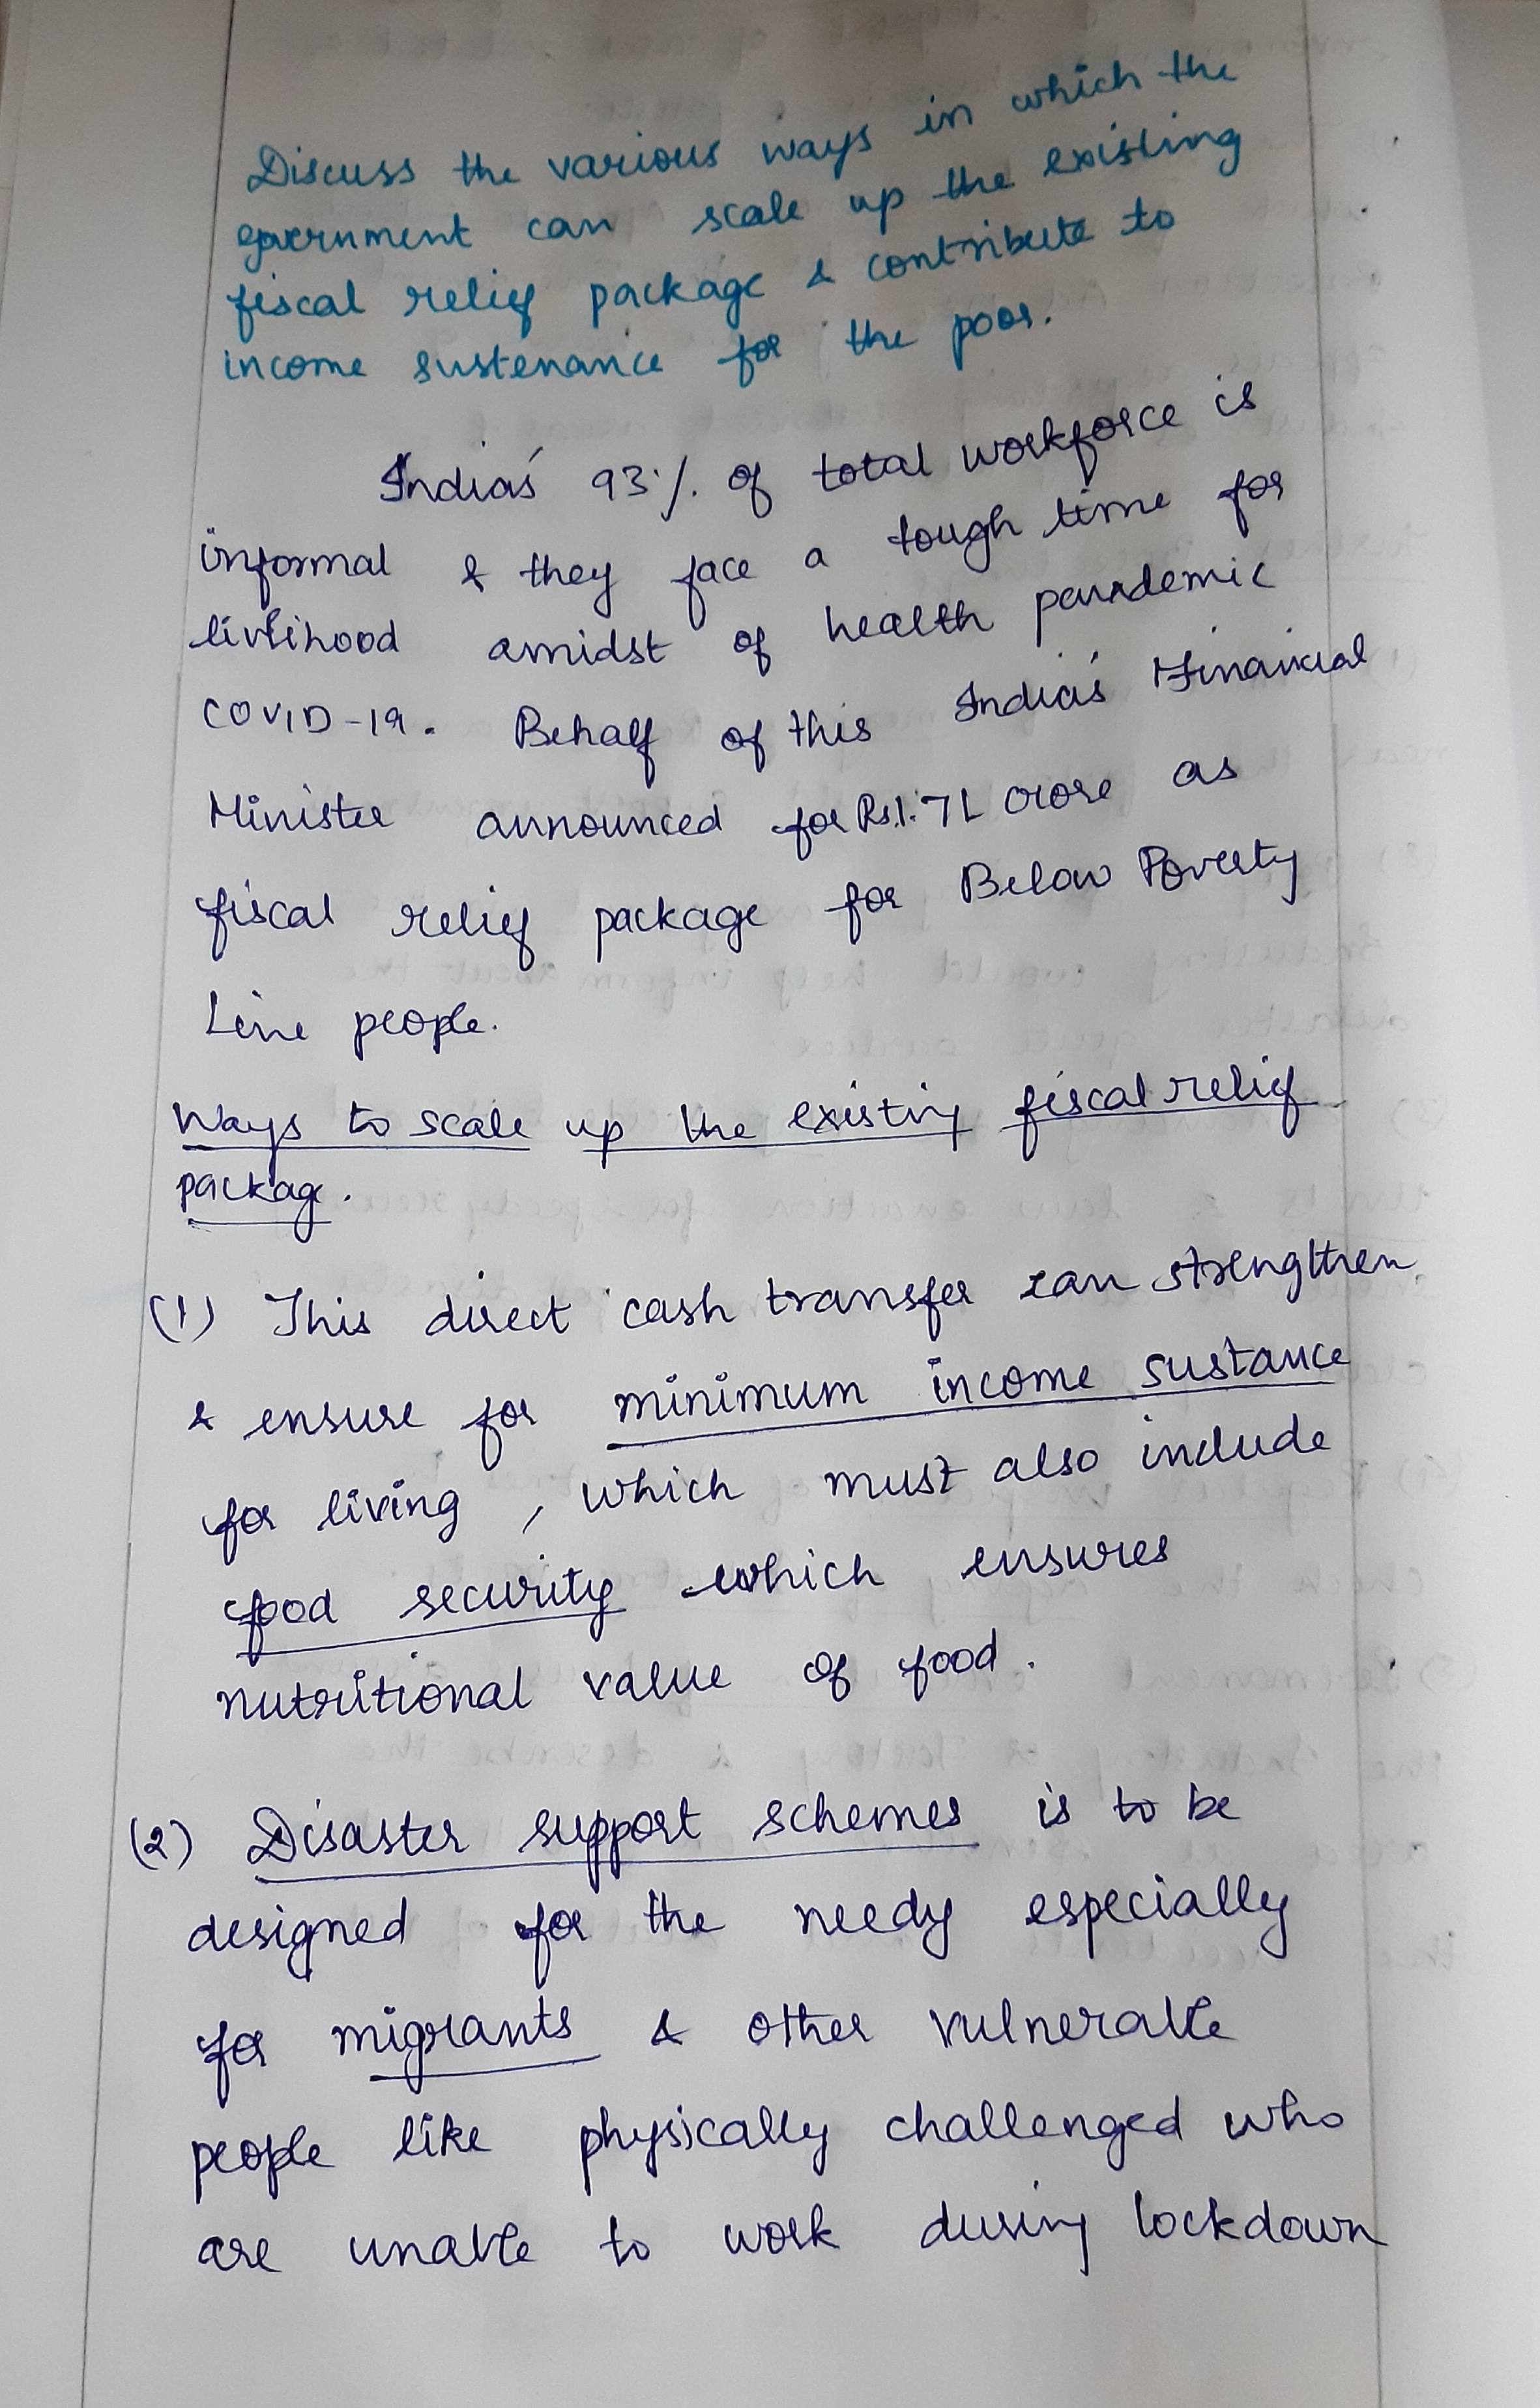 Discuss the various ways in which the
government can scale up the existing
fiscal relief package & contribute to
income sustenance for the poor.
India's 93% of total workforce is
informal & they face a tough time for
livlihood amidst of health pandemic
COVID-19. Behalf of this India's Financial
Minister announced for Rs.1.7L crore as
fiscal relief package for Below Poverty
Line people.
Ways to scale up the existing fiscal relief
package.
(1) This direct cash transfer can strengthen
& ensure for minimum income sustance
for living, which must also include
food security which ensures
nutritional value of food.
(2) Disaster support schemes is to be
designed for the needy especially
for migrants & other vulnerable
people like physically challenged who
are unable to work during lockdown